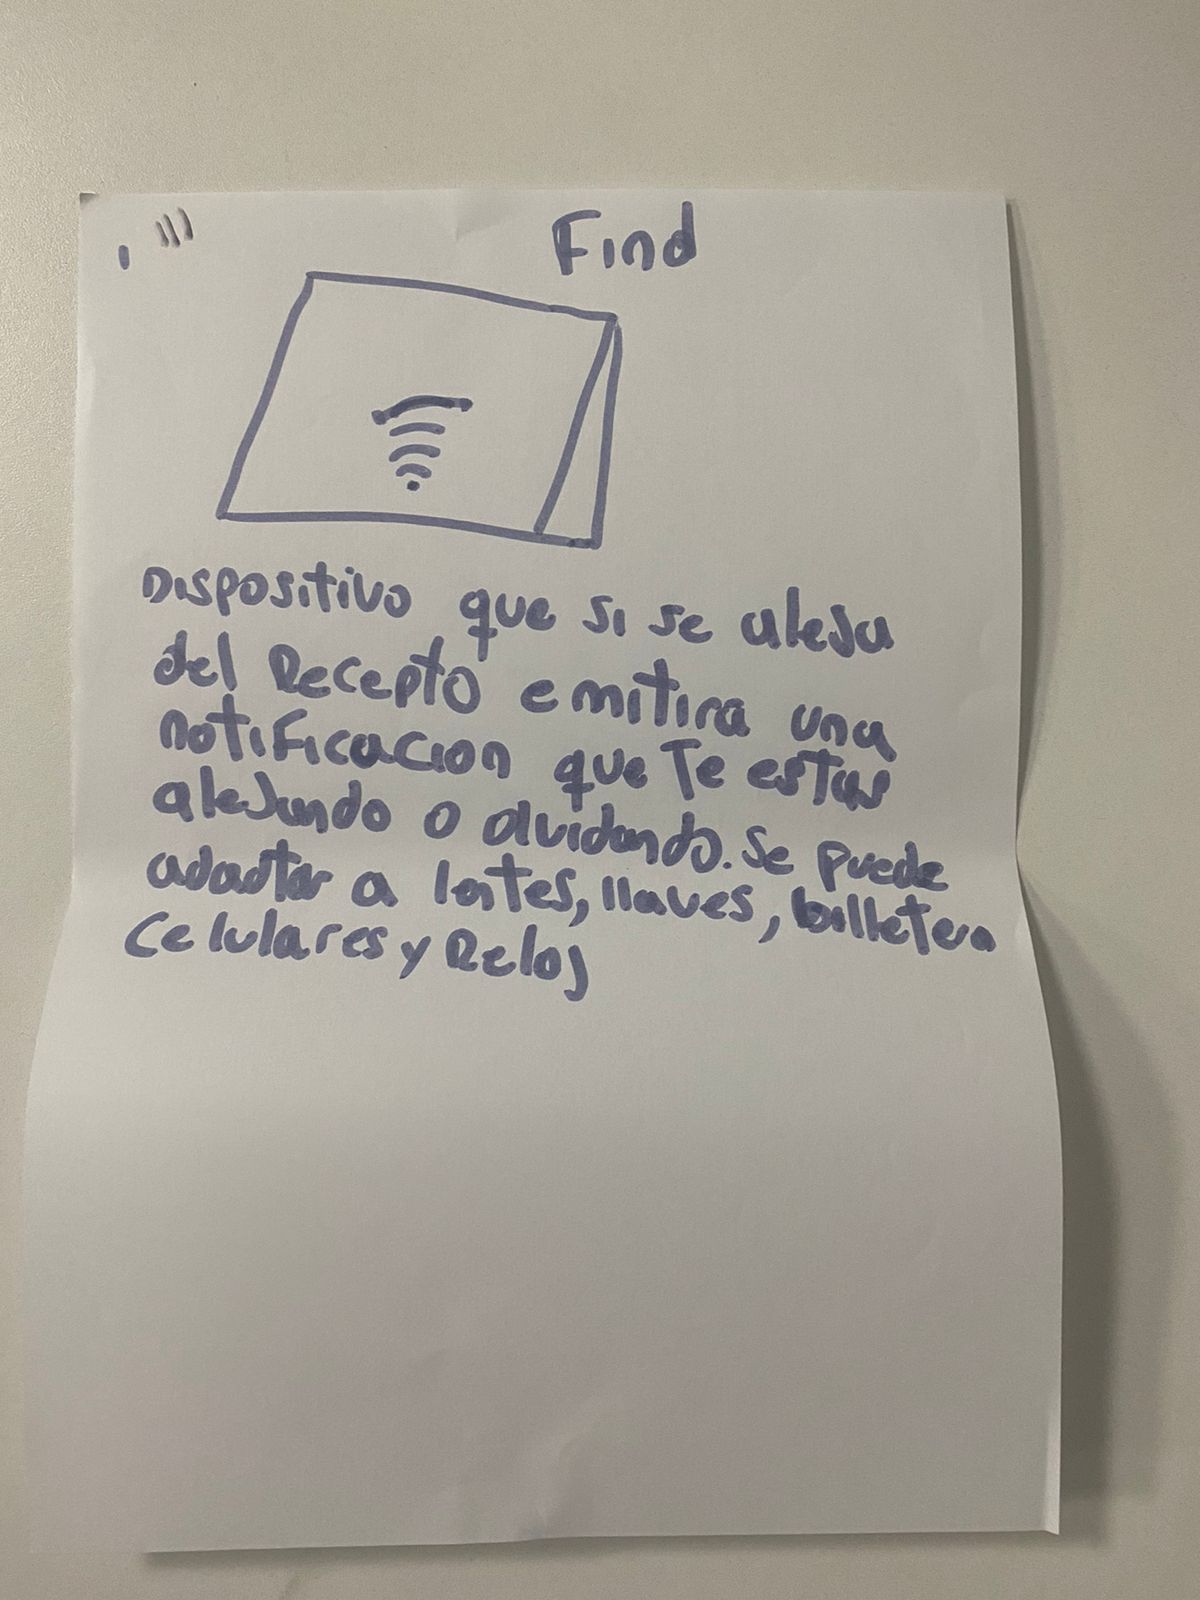 Find
Dispositivo que si se aleja
del Recepto emitira una
notificacion que Te estas
alejando o olvidando. Se puede
adaptar a lentes, llaves, billetera
Celulares y Reloj